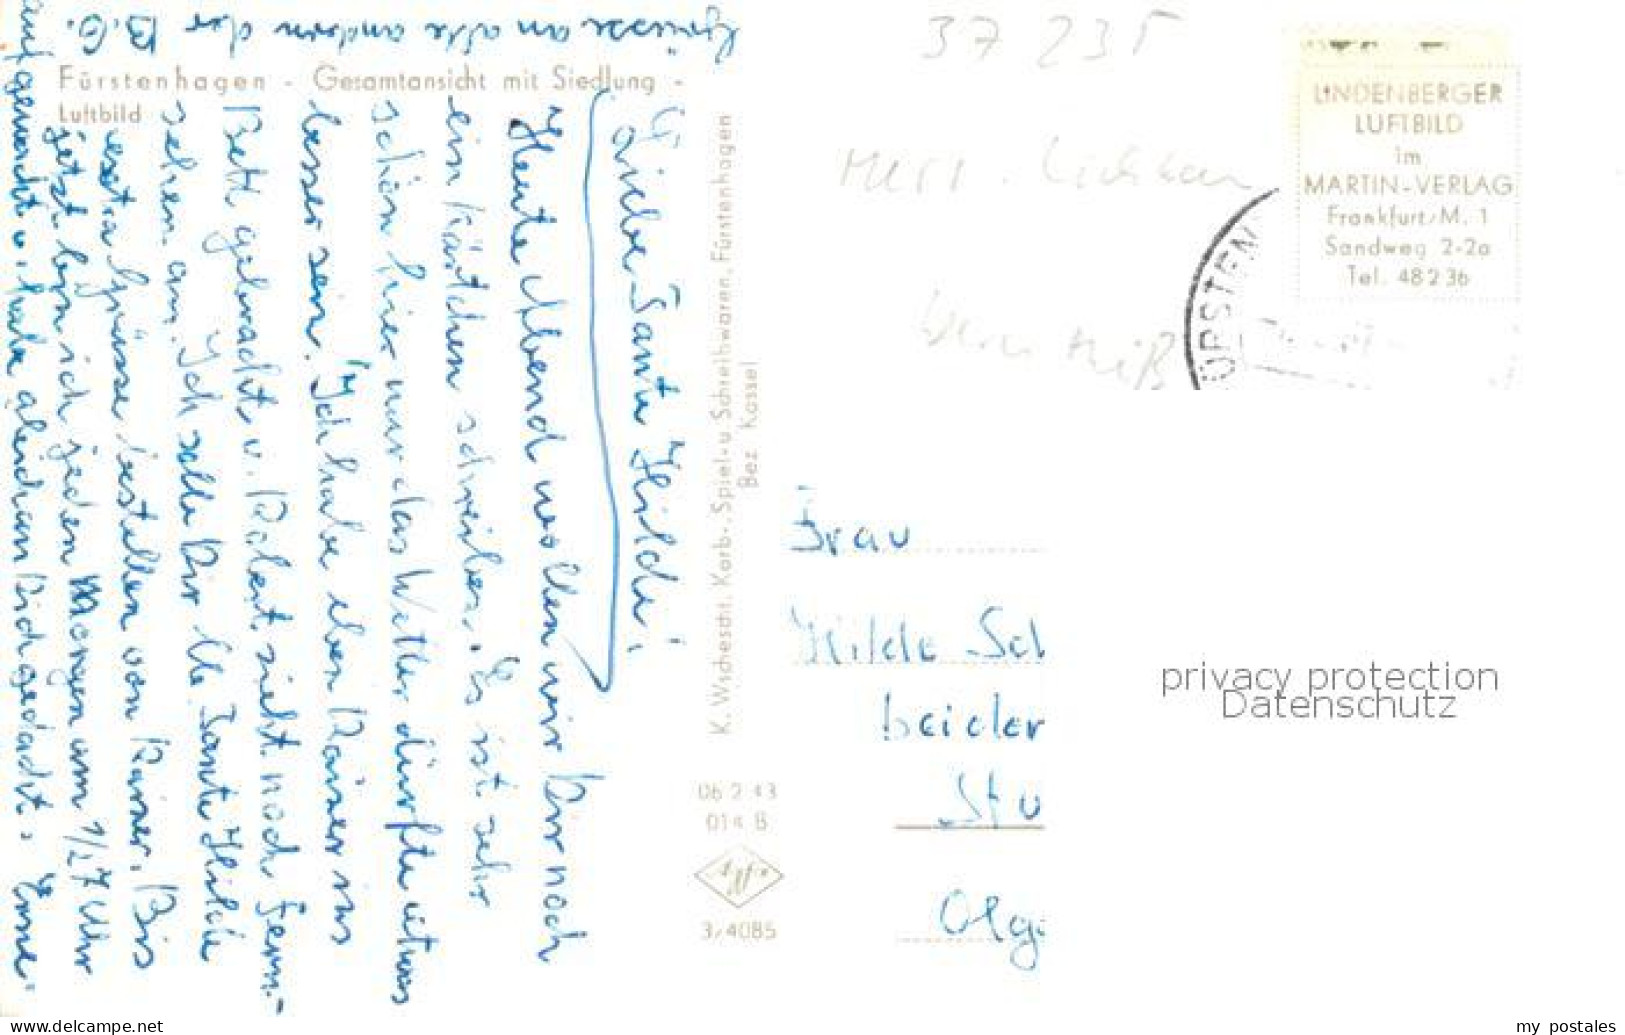 Grüsse an alle anderen der D.O.
Fürstenhagen - Gesamtansicht mit Siedlung -
Luftbild
Liebe Tante Hilde!
Heute Abend wollen wir Dir noch
ein Kärtchen schreiben. Es ist sehr
schön hier nur das Wetter dürfte etwas
besser sein. Ich habe eben Rainer ins
Bett gebracht u. Robert sieht noch Fern-
sehen an. Ich solle Dir lb. Tante Hilde
extra Grüsse bestellen von Rainer. Bis
jetzt bin ich jeden Morgen um 1/2 7 Uhr
aufgewacht u. habe gleich an Dich gedacht.
K. Wschescht, Korb-, Spiel- u Schreibwaren, Fürstenhagen
Bez Kassel
06 2 43
014 B
Agfa
3/4085
37 235
Herr
LINDENBERGER
LUFTBILD
im
MARTIN-VERLAG
Frankfurt/M. 1
Sandweg 2-2a
Tel. 48236
ÜRSTEN
Frau
Hilde Sch
beider
Stu
Olga
privacy protection
Datenschutz
www.delcampe.net
my_postales